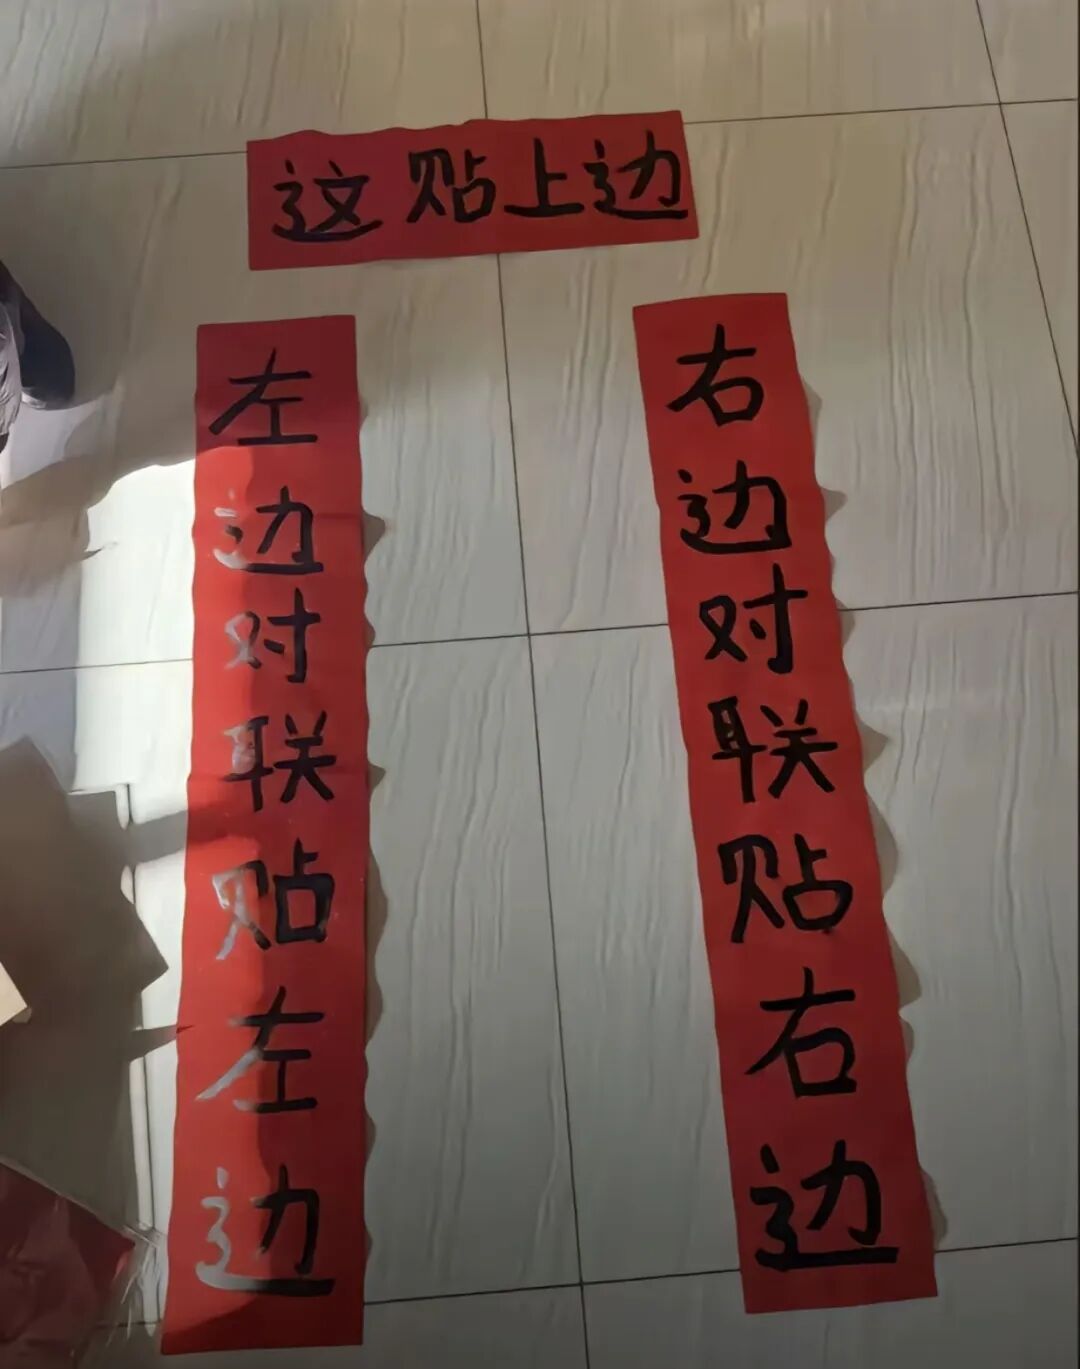 这贴上边
左边对联贴左边
右边对联贴右边